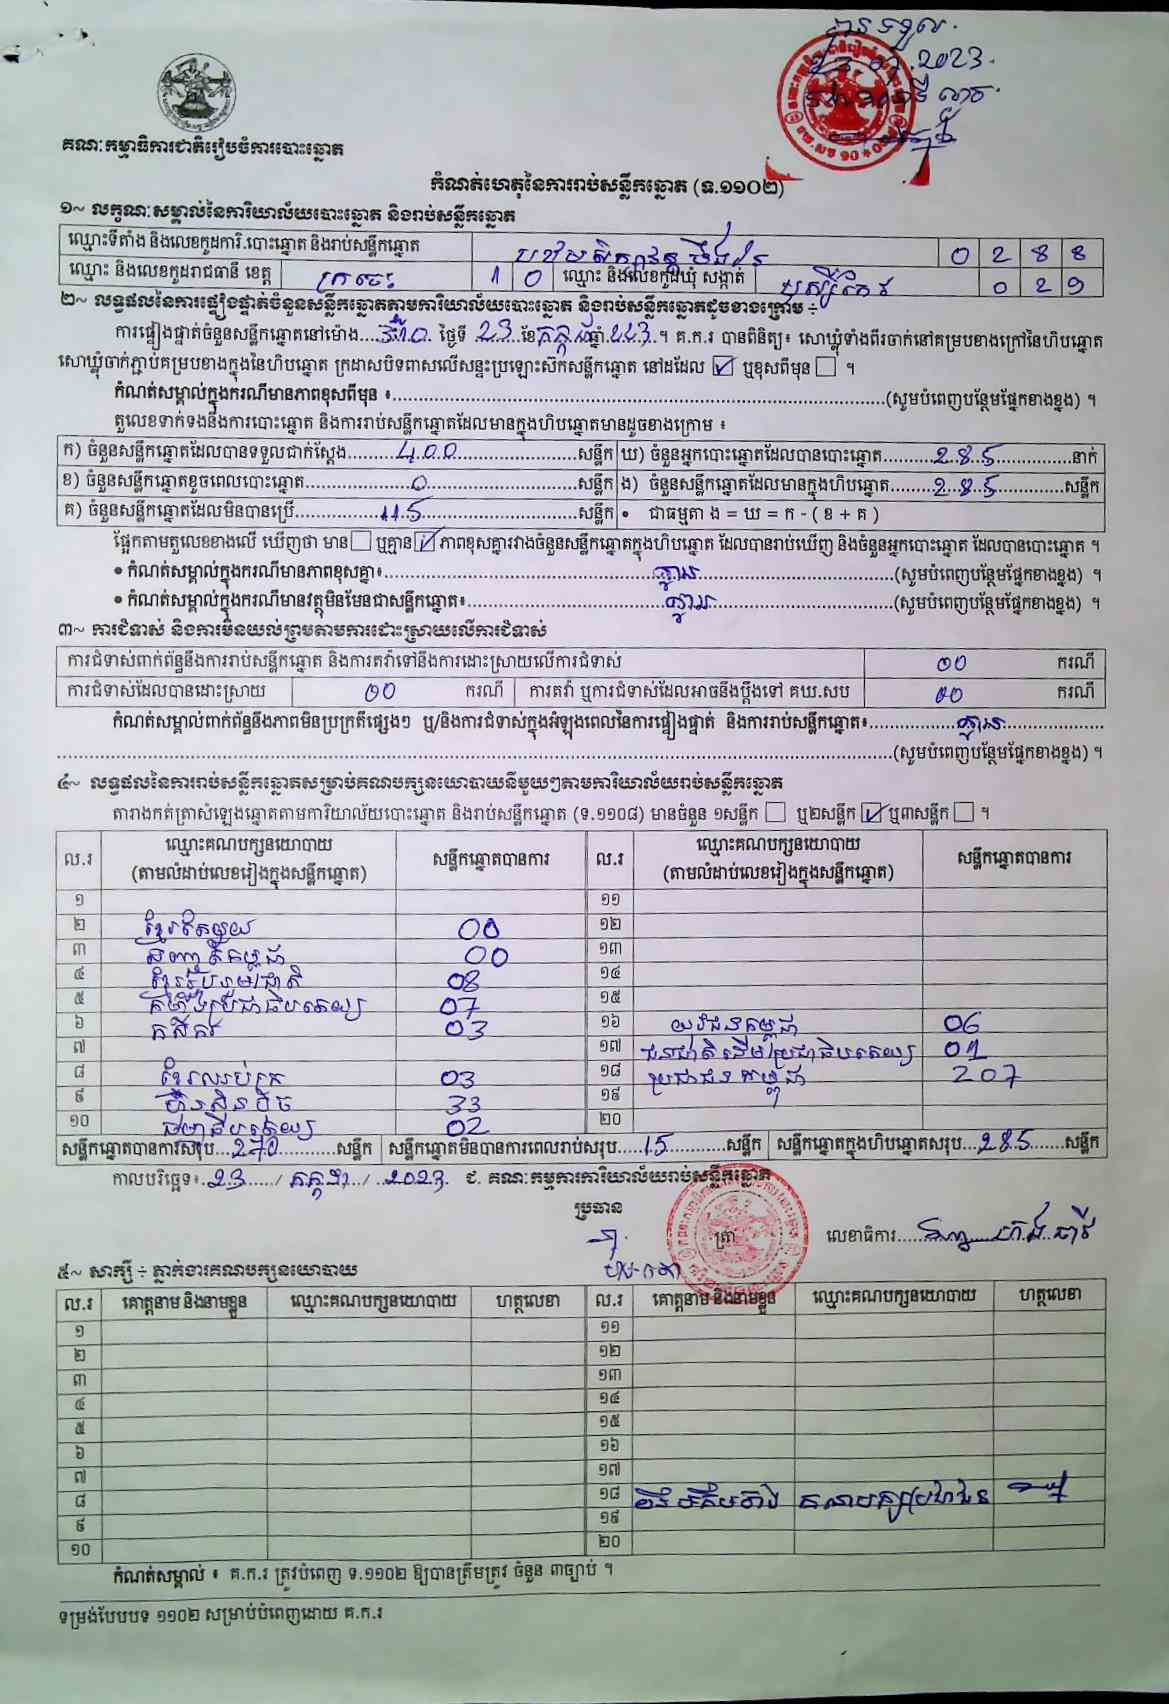 បានទទួល
23.07.2023
គណៈកម្មាធិការជាតិរៀបចំការបោះឆ្នោត
កំណត់ហេតុនៃការរាប់សន្លឹកឆ្នោត (ទ.១១០២)
១~ លក្ខណៈសម្គាល់នៃការិយាល័យបោះឆ្នោត និងរាប់សន្លឹកឆ្នោត
ឈ្មោះទីតាំង និងលេខកូដការិ.បោះឆ្នោត និងរាប់សន្លឹកឆ្នោត 0 2 8 8
ឈ្មោះ និងលេខកូដរាជធានី ខេត្ត ក្រចេះ 1 0 ឈ្មោះ និងលេខកូដឃុំ សង្កាត់ ឫស្សីកែវ 0 2 9
២~ លទ្ធផលនៃការផ្ទៀងផ្ទាត់ចំនួនសន្លឹកឆ្នោតតាមការិយាល័យបោះឆ្នោត និងរាប់សន្លឹកឆ្នោតដូចខាងក្រោម ÷
ការផ្ទៀងផ្ទាត់ចំនួនសន្លឹកឆ្នោតនៅម៉ោង ថ្ងៃទី 23 ខែ កក្កដា ឆ្នាំ 2023 ។ គ.ក.រ បានពិនិត្យ៖ សោឃ្លុំទាំងពីរចាក់នៅគម្របខាងក្រៅនៃហិបឆ្នោត
សោឃ្លុំចាក់ភ្ជាប់គម្របខាងក្នុងនៃហិបឆ្នោត ក្រដាសបិទពាសលើសន្ទះប្រឡោះស៊កសន្លឹកឆ្នោត នៅដដែល ☑ ឬខុសពីមុន ☐ ។
កំណត់សម្គាល់ក្នុងករណីមានភាពខុសពីមុន ៖.....(សូមបំពេញបន្ថែមផ្នែកខាងខ្នង) ។
តួលេខទាក់ទងនឹងការបោះឆ្នោត និងការរាប់សន្លឹកឆ្នោតដែលមានក្នុងហិបឆ្នោតមានដូចខាងក្រោម ៖
ក) ចំនួនសន្លឹកឆ្នោតដែលបានទទួលជាក់ស្តែង 400 សន្លឹក ឃ) ចំនួនអ្នកបោះឆ្នោតដែលបានបោះឆ្នោត 285 នាក់
ខ) ចំនួនសន្លឹកឆ្នោតខូចពេលបោះឆ្នោត 0 សន្លឹក ង) ចំនួនសន្លឹកឆ្នោតដែលមានក្នុងហិបឆ្នោត 285 សន្លឹក
គ) ចំនួនសន្លឹកឆ្នោតដែលមិនបានប្រើ 115 សន្លឹក • ជាធម្មតា ង = ឃ = ក - ( ខ + គ )
ផ្អែកតាមតួលេខខាងលើ ឃើញថា មាន ☐ ឬគ្មាន ☑ ភាពខុសគ្នារវាងចំនួនសន្លឹកឆ្នោតក្នុងហិបឆ្នោត ដែលបានរាប់ឃើញ និងចំនួនអ្នកបោះឆ្នោត ដែលបានបោះឆ្នោត ។
• កំណត់សម្គាល់ក្នុងករណីមានភាពខុសគ្នា៖ គ្មាន (សូមបំពេញបន្ថែមផ្នែកខាងខ្នង) ។
• កំណត់សម្គាល់ក្នុងករណីមានវត្ថុមិនមែនជាសន្លឹកឆ្នោត៖ គ្មាន (សូមបំពេញបន្ថែមផ្នែកខាងខ្នង) ។
៣~ ការជំទាស់ និងការមិនយល់ព្រមតាមការដោះស្រាយលើការជំទាស់
ការជំទាស់ពាក់ព័ន្ធនឹងការរាប់សន្លឹកឆ្នោត និងការតវ៉ាទៅនឹងការដោះស្រាយលើការជំទាស់ 00 ករណី
ការជំទាស់ដែលបានដោះស្រាយ 00 ករណី ការតវ៉ា ឬការជំទាស់ដែលអាចនឹងប្តឹងទៅ គឃ.សប 00 ករណី
កំណត់សម្គាល់ពាក់ព័ន្ធនឹងភាពមិនប្រក្រតីផ្សេងៗ ឬ/និងការជំទាស់ក្នុងអំឡុងពេលនៃការផ្ទៀងផ្ទាត់ និងការរាប់សន្លឹកឆ្នោត៖ គ្មាន
(សូមបំពេញបន្ថែមផ្នែកខាងខ្នង) ។
៤~ លទ្ធផលនៃការរាប់សន្លឹកឆ្នោតសម្រាប់គណបក្សនយោបាយនីមួយៗតាមការិយាល័យរាប់សន្លឹកឆ្នោត
តារាងកត់ត្រាសំឡេងឆ្នោតតាមការិយាល័យបោះឆ្នោត និងរាប់សន្លឹកឆ្នោត (ទ.១១០៨) មានចំនួន ១សន្លឹក ☐ ឬ២សន្លឹក ☑ ឬ៣សន្លឹក ☐ ។
ល.រ ឈ្មោះគណបក្សនយោបាយ (តាមលំដាប់លេខរៀងក្នុងសន្លឹកឆ្នោត) សន្លឹកឆ្នោតបានការ ល.រ ឈ្មោះគណបក្សនយោបាយ (តាមលំដាប់លេខរៀងក្នុងសន្លឹកឆ្នោត) សន្លឹកឆ្នោតបានការ
១ ១១
២ ខ្មែរតែមួយ 00 ១២
៣ សញ្ជាតិកម្ពុជា 00 ១៣
៤ ខ្មែររួបរួមជាតិ 08 ១៤
៥ គំហើញប្រជាធិបតេយ្យ 07 ១៥
៦ កសិករ 03 ១៦ យុវជនកម្ពុជា 06
៧ ១៧ ជនជាតិដើមប្រជាធិបតេយ្យ 01
៨ ខ្មែរឈប់ក្រ 03 ១៨ ប្រជាជនកម្ពុជា 207
៩ ហ៊្វុនស៊ិនប៉ិច 33 ១៩
១០ ធម្មាធិបតេយ្យ 02 ២០
សន្លឹកឆ្នោតបានការសរុប 270 សន្លឹក សន្លឹកឆ្នោតមិនបានការពេលរាប់សរុប 15 សន្លឹក សន្លឹកឆ្នោតក្នុងហិបឆ្នោតសរុប 285 សន្លឹក
កាលបរិច្ឆេទ៖ 23 / កក្កដា / 2023 ជ. គណៈកម្មការការិយាល័យរាប់សន្លឹកឆ្នោត
ប្រធាន
ត្រា លេខាធិការ
៥~ សាក្សី ÷ ភ្នាក់ងារគណបក្សនយោបាយ
ល.រ គោត្តនាម និងនាមខ្លួន ឈ្មោះគណបក្សនយោបាយ ហត្ថលេខា ល.រ គោត្តនាម និងនាមខ្លួន ឈ្មោះគណបក្សនយោបាយ ហត្ថលេខា
១ ១១
២ ១២
៣ ១៣
៤ ១៤
៥ ១៥
៦ ១៦
៧ ១៧
៨ ១៨ គណបក្សប្រជាជន
៩ ១៩
១០ ២០
កំណត់សម្គាល់ ៖ គ.ក.រ ត្រូវបំពេញ ទ.១១០២ ឱ្យបានត្រឹមត្រូវ ចំនួន ៣ច្បាប់ ។
ទម្រង់បែបបទ ១១០២ សម្រាប់បំពេញដោយ គ.ក.រ